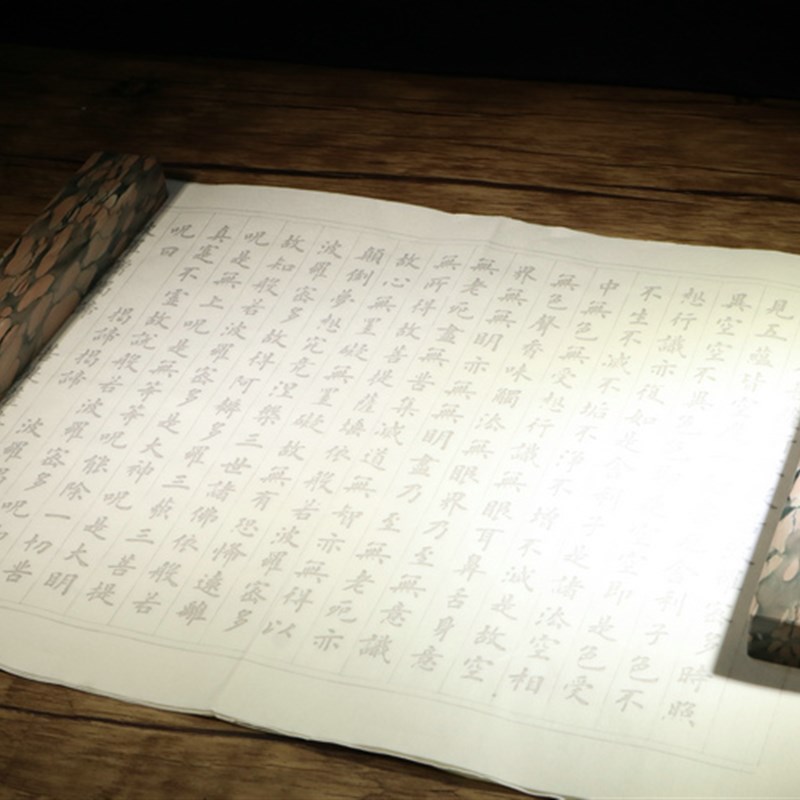 多時照
見五蘊皆空度一切苦厄舍利子色不
異空空不異色色即是空空即是色受
想行識亦復如是舍利子是諸法空相
不生不滅不垢不淨不增不減是故空
中無色無受想行識無眼耳鼻舌身意
界無無明亦無無明盡乃至無老死亦
無色聲香味觸法無眼界乃至無意識
無老死盡無苦集滅道無智亦無得以
無所得故菩提薩埵依般若波羅蜜多
故心無罣礙無罣礙故無有恐怖遠離
顛倒夢想究竟涅槃三世諸佛依般若
波羅蜜多故得阿耨多羅三藐三菩提
故知般若波羅蜜多是大神呪是大明
呪是無上呪是無等等呪能除一切苦
真實不虛故說般若波羅蜜多呪
呪曰
揭諦揭諦
波